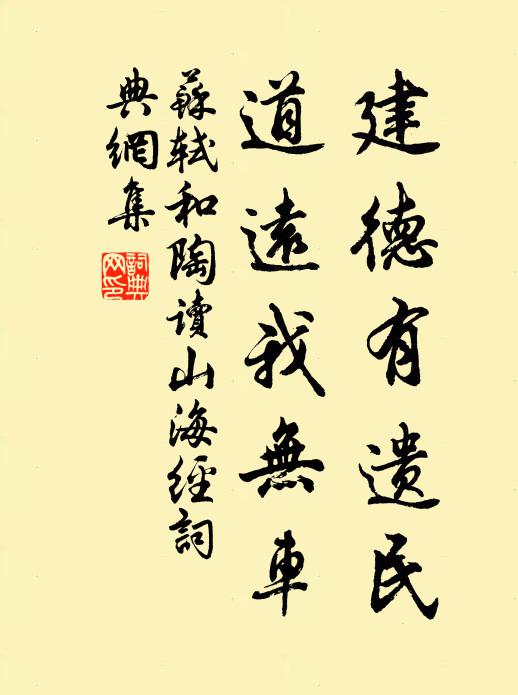 建德有遺民
道遠我無車
蘇軾和陶讀山海經詞
典網集
詞典
网印